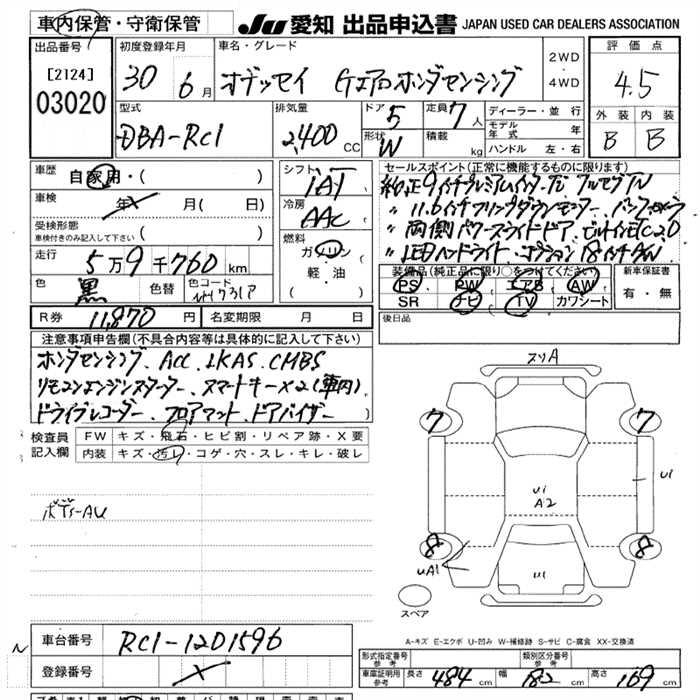 車内保管・守衛保管
JU 愛知 出品申込書 JAPAN USED CAR DEALERS ASSOCIATION
出品番号
[2124]
03020
初度登録年月
30 6月
車名・グレード
オデッセイ Gエアロホンダセンシング
2WD
・
4WD
評価点
4.5
外装 内装
B B
型式
DBA-RC1
排気量
2,400 CC
ドア 5
定員 7人
形状 W
積載 kg
ディーラー・並行
モデル年式 年
ハンドル 左・右
車歴
自家用・( )
車検
年 月( 日)
受検形態
車検付きのみ記入して下さい ( )
走行
5万9千760km
色
黒
色替
色コード
NH731P
シフト
IAT
冷房
AAC
燃料
ガソリン
軽・油
( )
セールスポイント(正常に機能するものに限ります)
純正9インチプレミアムインターナビ フルセグTV
〃 11.6インチフリップダウンモニター、バックカメラ
〃 両側パワースライドドア、ビルトインETC2.0
〃 LEDヘッドライト、オプション18インチAW
装備品(純正品に限り○をつけてください)
PS PW エアB AW
SR ナビ TV カワシート
新車保証書
有・無
R券 11,870 円
名変期限 月 日
後日品
注意事項申告欄(不具合内容等は具体的に記入して下さい)
ホンダセンシング、ACC、LKAS、CMBS
リモコンエンジンスターター、スマートキー×2(車内)
ドライブレコーダー、フロアマット、ドアバイザー
検査員
記入欄
FW キズ・飛石・ヒビ割・リペア跡・X要
内装 キズ・汚レ・コゲ・穴・スレ・キレ・破レ
ボデーAU
スリA
7 7
U1
U1
A2
8 8
UA1
U1
スペア
A-キズ E-エクボ U-凹み W-補修跡 S-サビ C-腐食 XX-交換済
車台番号
RC1-1201596
登録番号
形式指定番号
参考
類別区分番号
参考
車庫証明用
参考
長さ 484cm
幅 182cm
高さ 169cm